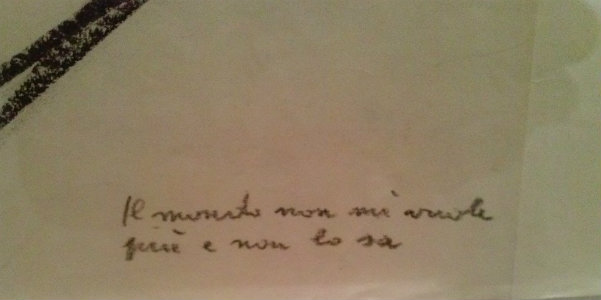 Il mondo non mi vuole
più e non lo sa